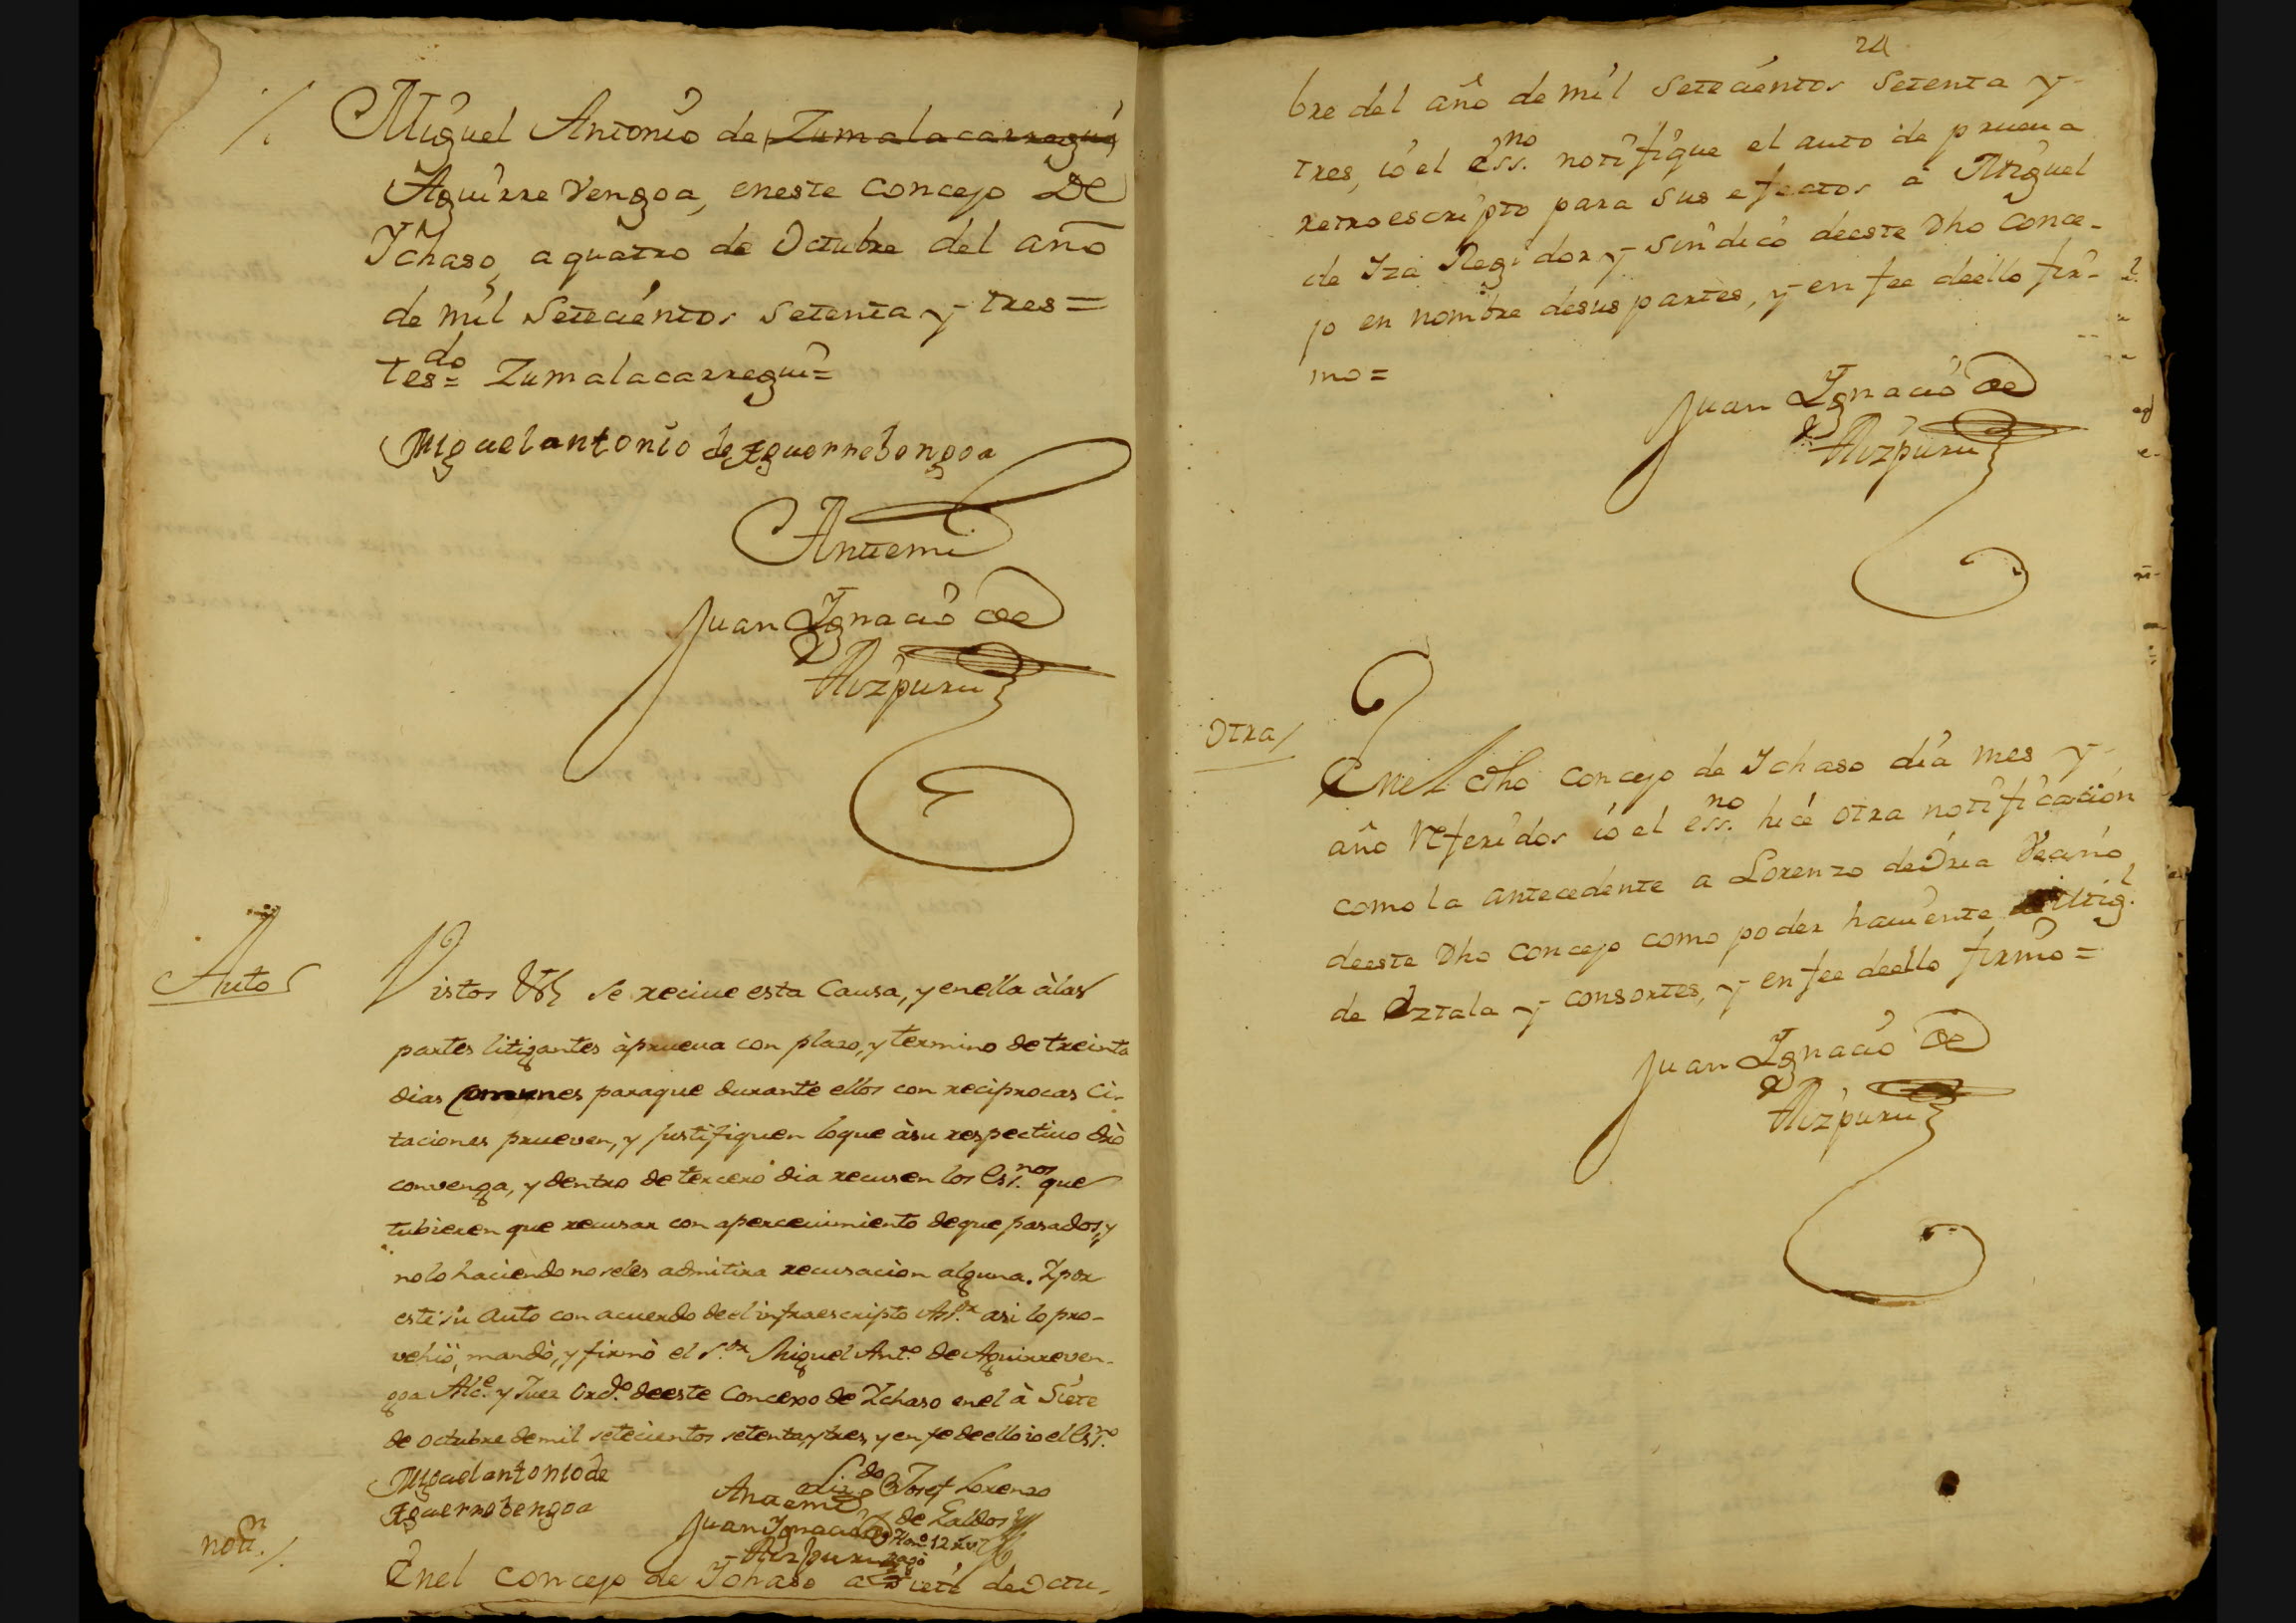 Miguel Antonio de Zumalacarregui
Aguirre Vengoa, eneste Concejo De
Ychaso, a quatro de Octubre del año
de mil Setecientos Setenta y tres=
tesdo= Zumalacarregui=
Miguel antonio de Aguerrebengoa
Antemi
Juan Ygnacio de
Aizpuru
Auto
Vistos &a se reciue esta Causa, y enella àlas
partes litigantes àprueua con plazo, y termino de treinta
dias Comunes paraque durante ellos con reciprocas Ci-
taciones prueven, y justifiquen loque àsu respectiuo dro
convenga, y dentro de tercero dia recusen los Essnos. que
tubieren que recusar con apercevimiento deque pasados, y
nolo haciendo noseles admitira recusaciòn alguna. Y por
este su Auto con acuerdo deel infraescripto Assr. asi lo pro-
vehiò, mandò, y firmò el Sor. Miguel Anto. de Aguirreven-
goa Alce. y Juez Ordo. deeste Concexo de Ychaso enel à Siete
de octubre demil setecientos setentaytres, y en fe deello io el Essno.
Miguel antonio de
Aguerrebengoa
Lizdo. Josef Lorenzo
de Galdos
Antemi
Juan Ygnacio de
Hono. 12 rs.
Aizpuru
pagò
notn.
Enel concejo de Ychaso a Siete de Octu-
24
bre del año de mil Setecientos Setenta y
tres, io el essno. notifique el auto de prueua
retroescripto para sus efectos a Miguel
de Yza Regidor y Sindico deeste Dho Conce-
jo en nombre desus partes, y en fee deello fir-
mo=
Juan Ygnacio de
Aizpuru
Otra
Enel dho concejo de Ychaso dia mes y
año Referidos io el essno. hice otra notificación
como la antecedente a Lorenzo de Oria Vecino
deeste Dho concejo como poder hauiente de Migl.
de Oztala y consortes, y en fee deello firmo=
Juan Ygnacio de
Aizpuru